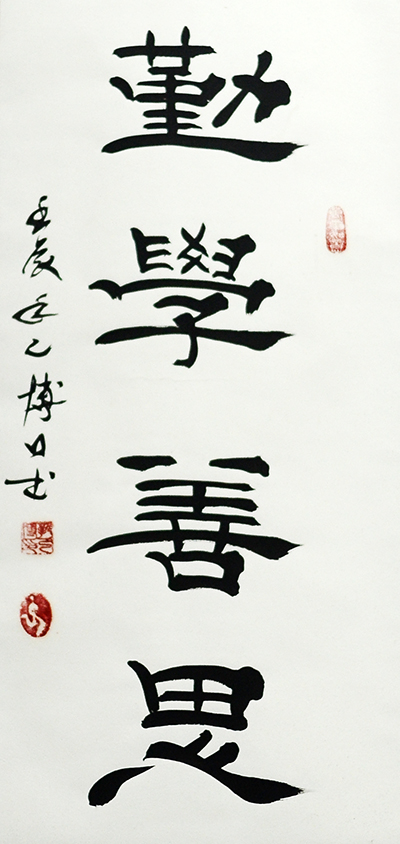 勤學善思
壬辰年之博日書